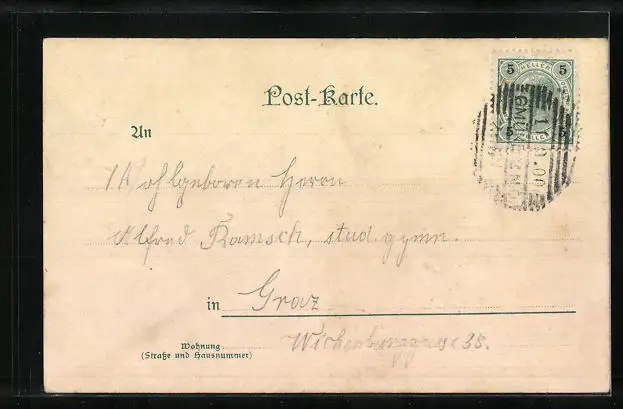 5 HELLER 5
Post-Karte.
5 HELLER 5
GMUN
An
Wohlgeboren Herrn
Alfred Ramsch, stud. gymn.
in Graz
Wohnung
(Straße und Hausnummer)
Wickenburggasse 38.